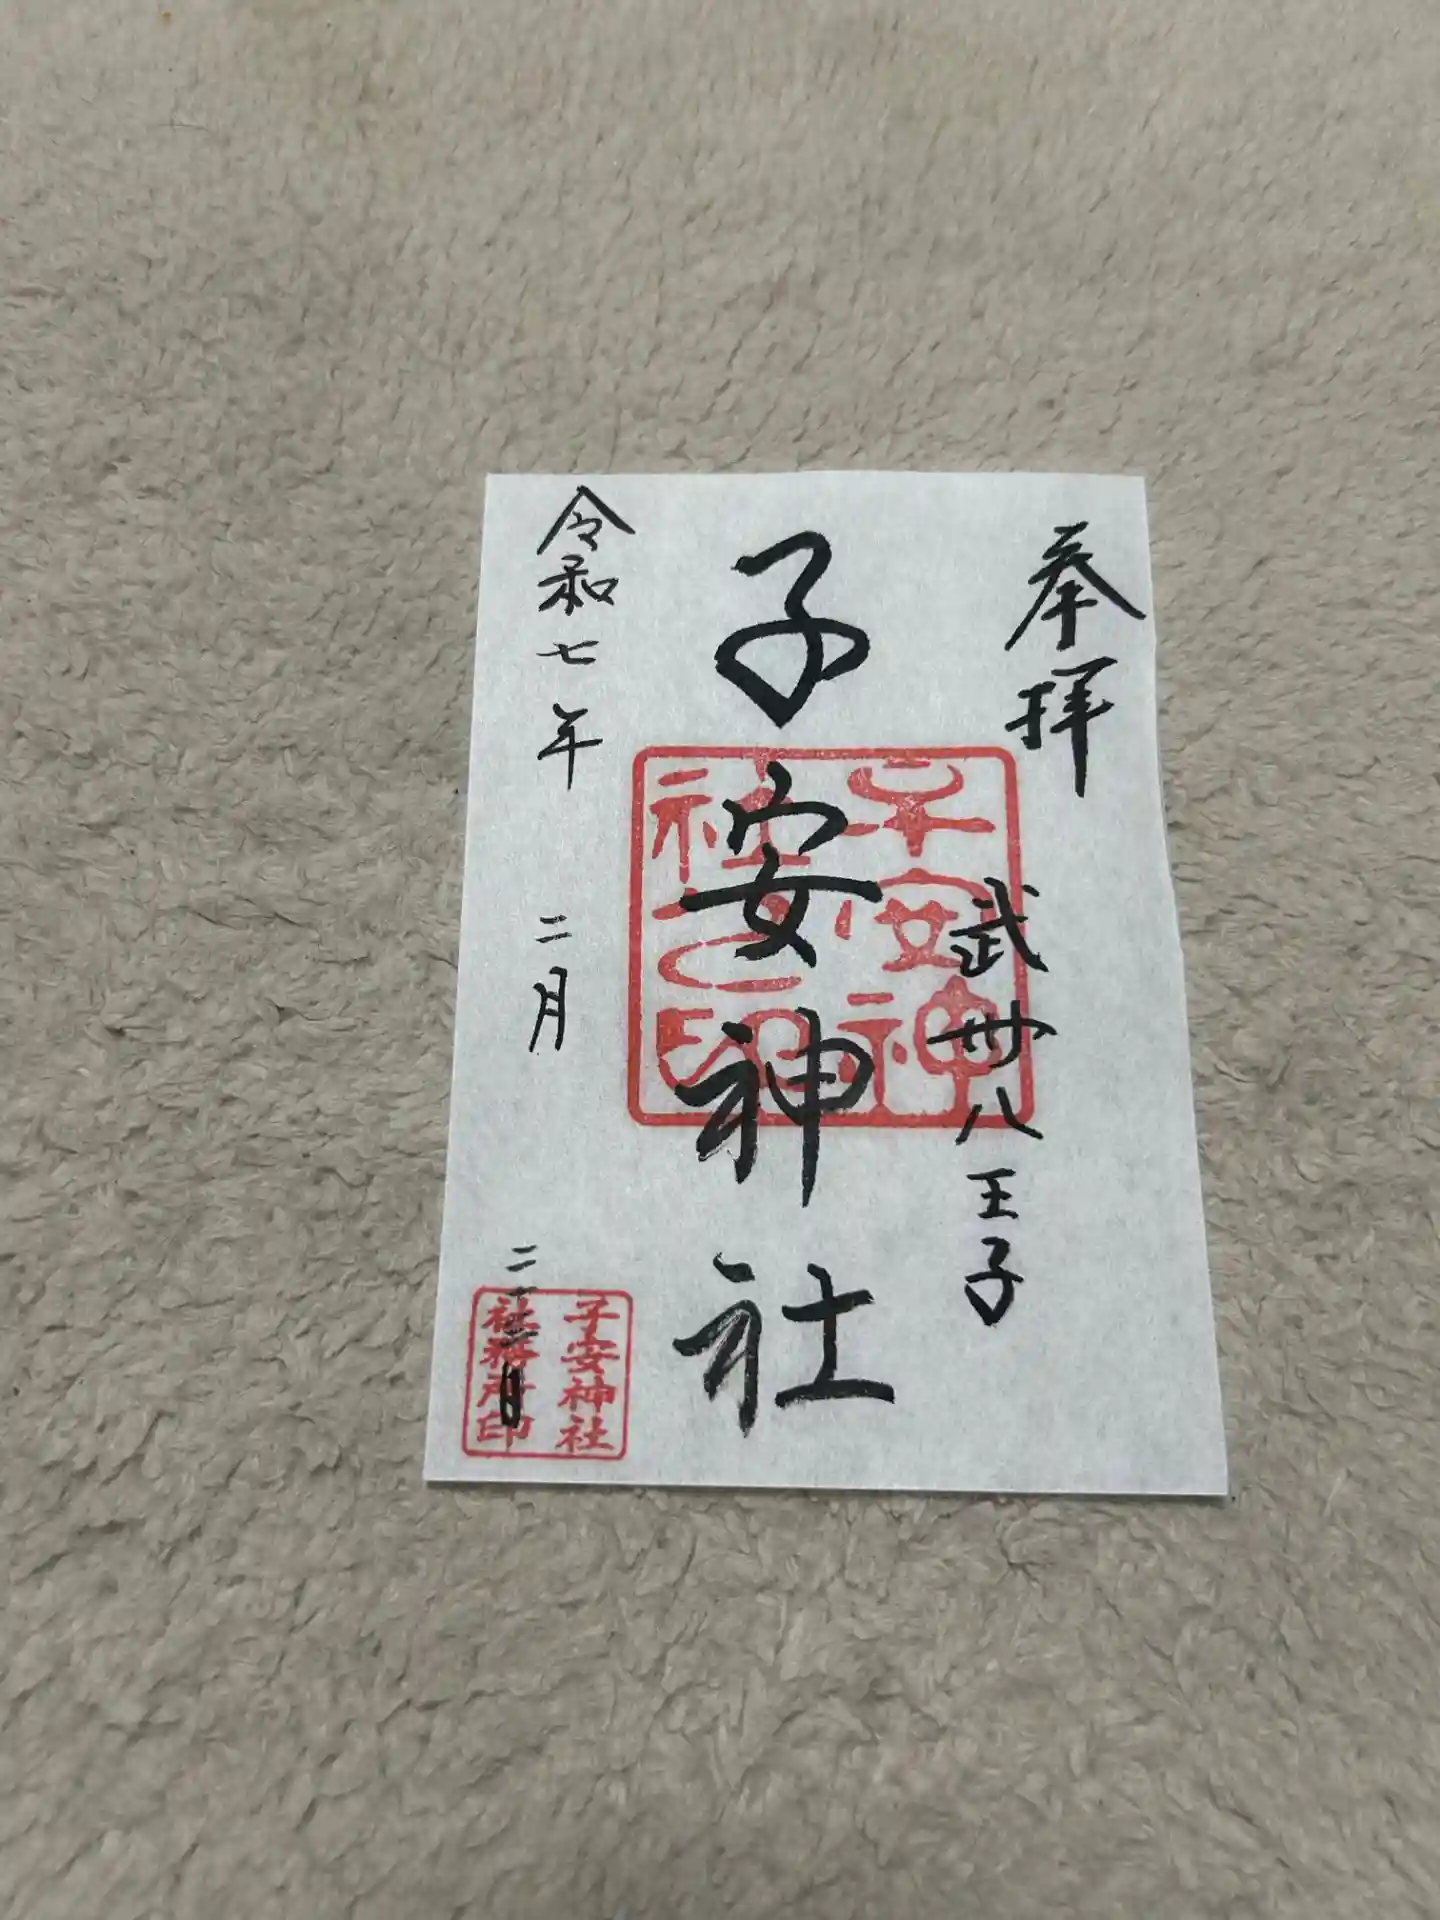 奉拝
武州八王子
子安神社
子安神
社之印
令和七年 二月
子安神社
社務所印